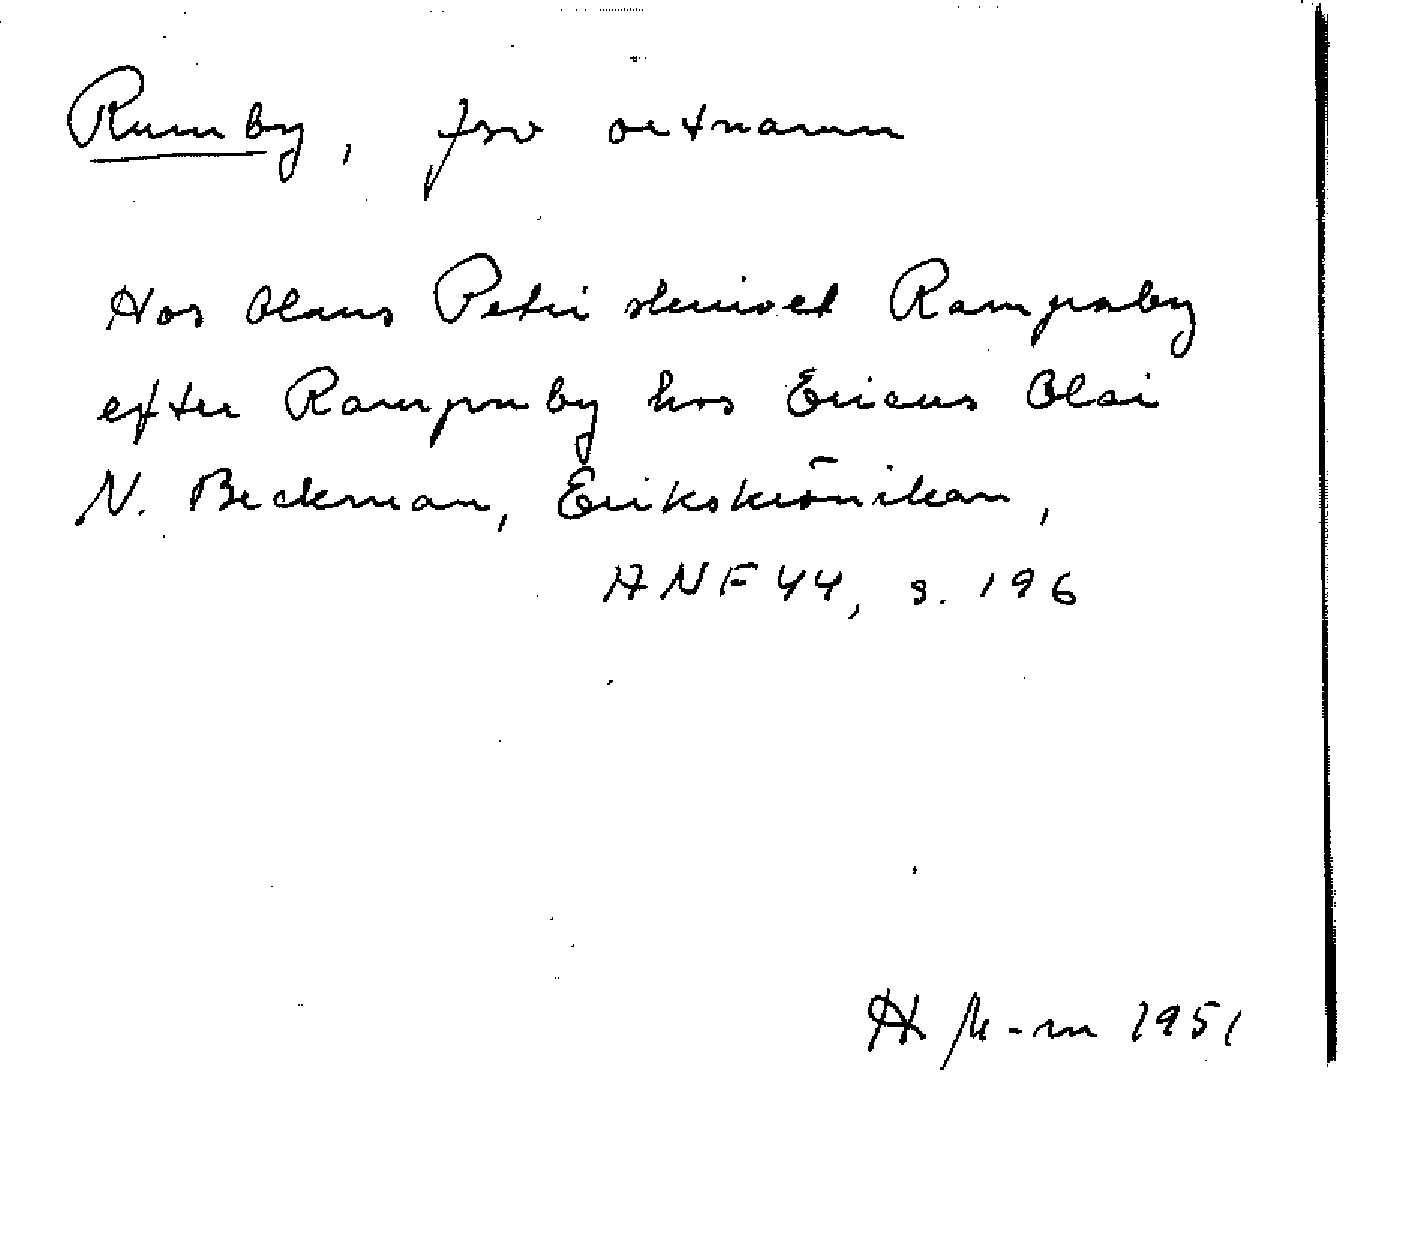 Rumby, fsv ortnamn
Hos Olaus Petri skrivet Rampnaby
efter Rampnby hos Ericus Olai
N. Beckman, Erikskrönikan,
ANF 44, s. 196
1951